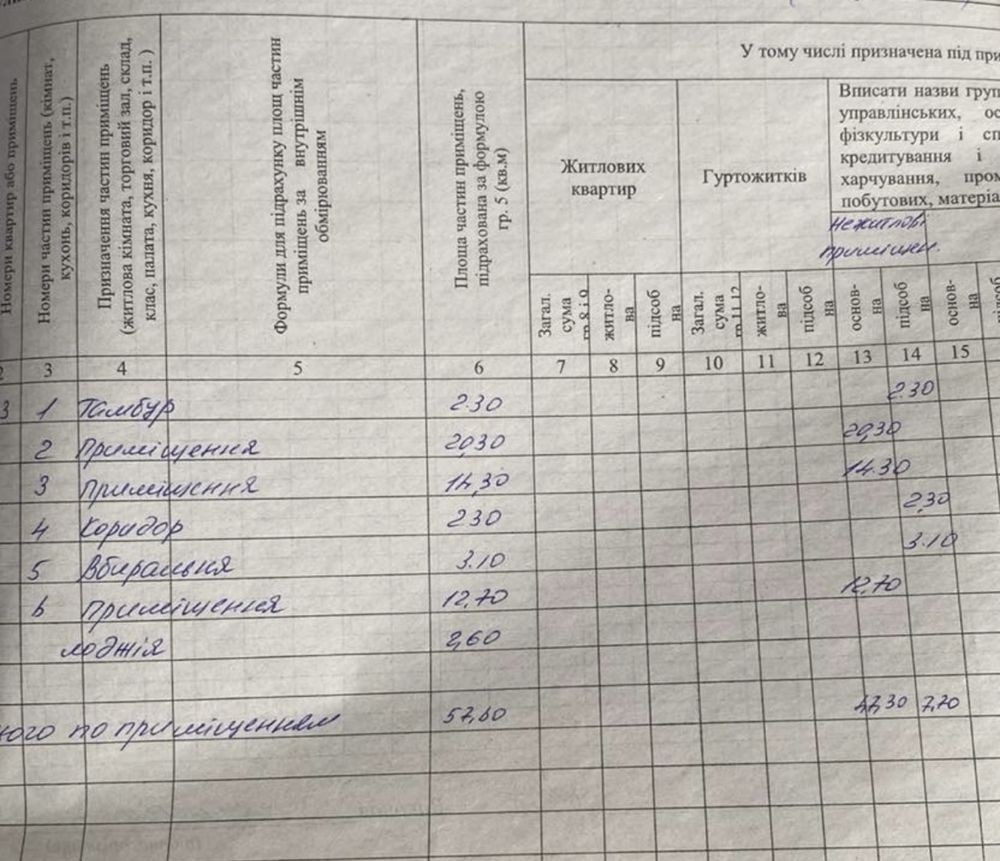 У тому числі призначена під при
Номери квартир або приміщень
Номери частин приміщень (кімнат,
кухонь, коридорів і т.п.)
Призначення частин приміщень
(житлова кімната, торговий зал, склад,
клас, палата, кухня, коридор і т.п. )
Формули для підрахунку площ частин
приміщень за внутрішнім
обмірюванням
Площа частин приміщень,
підрахована за формулою
гр. 5 (кв.м)
Житлових
квартир
Гуртожитків
Вписати назви груп
управлінських, ос
фізкультури і сп
кредитування і
харчування, пром
побутових, матеріа
Нежитлові
приміщен.
Загал.
сума
гр.8 і 9
житло-
ва
підсоб
на
Загал.
сума
гр.11,12
житло-
ва
підсоб
на
основ-
на
підсоб
на
основ-
на
підсоб
2 3 4 5 6 7 8 9 10 11 12 13 14 15
3 1 Тамбур 2.30 2.30
2 Приміщення 20,30 20,30
3 Приміщення 14,30 14.30
4 Коридор 230 2,30
5 Вбиральня 3.10 3.10
6 Приміщення 12,70 12,70
лоджія 2,60
ного по приміщенням 57,60 47,30 7,70